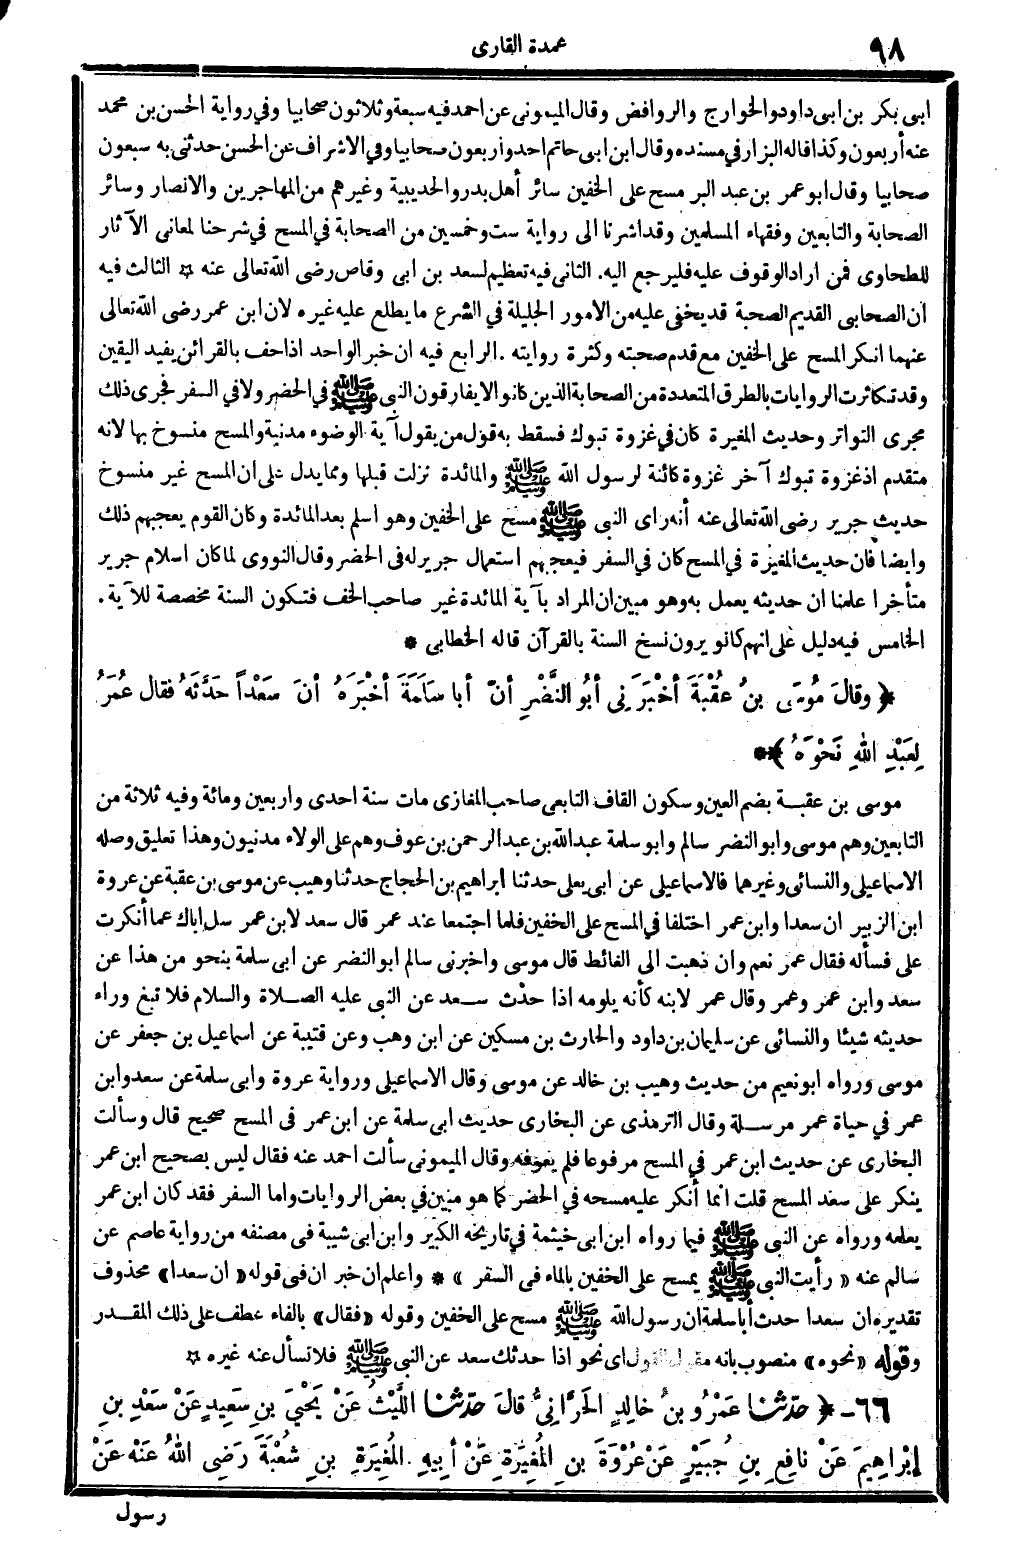 ٩٨
عمدة القارى
ابى بكر بن ابى داود والخوارج والروافض وقال الميمونى عن احمد فيه سبعة وثلاثون صحابيا وفي رواية الحسن بن محمد
عنه أربعون وكذا قاله البزار في مسنده وقال ابن ابى حاتم احد وأربعون صحابيا وفي الاشراف عن الحسن حدثنى به سبعون
صحابيا وقال ابو عمر بن عبد البر مسح على الخفين سائر أهل بدر والحديبية وغيرهم من المهاجرين والانصار وسائر
الصحابة والتابعين وفقهاء المسلمين وقد اشرنا الى رواية ست وخمسين من الصحابة في المسح في شرحنا لمعانى الآثار
للطحاوى فمن اراد الوقوف عليه فليرجع اليه. الثانى فيه تعظيم لسعد بن ابى وقاص رضى الله تعالى عنه ☆ الثالث فيه
أن الصحابى القديم الصحبة قد يخفى عليه من الامور الجليلة في الشرع ما يطلع عليه غيره لان ابن عمر رضى الله تعالى
عنهما انكر المسح على الخفين مع قدم صحبته وكثرة روايته. الرابع فيه ان خبر الواحد اذا حف بالقرائن يفيد اليقين
وقد تكاثرت الروايات بالطرق المتعددة من الصحابة الذين كانوا لا يفارقون النبى ﷺ في الحضر ولا في السفر فجرى ذلك
مجرى التواتر وحديث المغيرة كان في غزوة تبوك فسقط به قول من يقول آية الوضوء مدنية والمسح منسوخ بها لانه
متقدم اذ غزوة تبوك آخر غزوة كائنة لرسول الله ﷺ والمائدة نزلت قبلها ومما يدل على ان المسح غير منسوخ
حديث جرير رضى الله تعالى عنه أنه راى النبى ﷺ مسح على الخفين وهو اسلم بعد المائدة وكان القوم يعجبهم ذلك
وايضا فان حديث المغيرة في المسح كان في السفر فيعجبهم استعمال جرير له فى الحضر وقال النووى لما كان اسلام جرير
متأخرا علمنا ان حديثه يعمل به وهو مبين ان المراد بآية المائدة غير صاحب الخف فتكون السنة مخصصة للآية.
الخامس فيه دليل على انهم كانو يرون نسخ السنة بالقرآن قاله الخطابى *
﴿ وقالَ مُوسَى بنُ عُقْبَةَ أخْبَرَنِى أبُو النَّضْرِ أنَّ أبا سَلَمَةَ أخْبَرَهُ أنَ سَعْداً حَدَّثَهُ فقال عُمَرُ
لِعَبْدِ اللهِ نَحْوَهُ ﴾**
موسى بن عقبة بضم العين وسكون القاف التابعى صاحب المغازى مات سنة احدى واربعين ومائة وفيه ثلاثة من
التابعين وهم موسى وابو النضر سالم وابو سلمة عبدالله بن عبد الرحمن بن عوف وهم على الولاء مدنيون وهذا تعليق وصله
الاسماعيلى والنسائى وغيرهما فالاسماعيلى عن ابى يعلى حدثنا ابراهيم بن الحجاج حدثنا وهيب عن موسى بن عقبة عن عروة
ابن الزبير ان سعدا وابن عمر اختلفا في المسح على الخفين فلما اجتمعا عند عمر قال سعد لابن عمر سل اباك عما أنكرت
على فسأله فقال عمر نعم وان ذهبت الى الغائط قال موسى واخبرنى سالم ابو النضر عن ابى سلمة بنحو من هذا عن
سعد وابن عمر وعمر وقال عمر لابنه كأنه يلومه اذا حدّث سعد عن النبى عليه الصلاة والسلام فلا تبغ وراء
حديثه شيئا والنسائى عن سليمان بن داود والحارث بن مسكين عن ابن وهب وعن قتيبة عن اسماعيل بن جعفر عن
موسى ورواه ابو نعيم من حديث وهيب بن خالد عن موسى وقال الاسماعيلى ورواية عروة وابى سلمة عن سعد وابن
عمر في حياة عمر مرسلة وقال الترمذى عن البخارى حديث ابى سلمة عن ابن عمر فى المسح صحيح قال وسألت
البخارى عن حديث ابن عمر في المسح مرفوعا فلم يعرفه وقال الميمونى سألت احمد عنه فقال ليس بصحيح ابن عمر
ينكر على سعد المسح قلت انما أنكر عليه مسحه في الحضر كما هو مبين في بعض الروايات واما السفر فقد كان ابن عمر
يعلمه ورواه عن النبى ﷺ فيما رواه ابن ابى خيثمة في تاريخه الكبير وابن ابى شيبة فى مصنفه من رواية عاصم عن
سالم عنه « رأيت النبى ﷺ يمسح على الخفين بالماء فى السفر » * واعلم ان خبر ان فى قوله « ان سعدا » محذوف
تقديره ان سعدا حدث أبا سلمة ان رسول الله ﷺ مسح على الخفين وقوله «فقال» بالفاء عطف على ذلك المقدر
وقوله «نحوه» منصوب بانه مقول القول اى نحو اذا حدثك سعد عن النبى ﷺ فلا تسأل عنه غيره ☆
٦٦ - ﴿ حدّثنا عَمْرُو بنُ خالِدٍ الحَرَّانِىُّ قالَ حدّثنا اللَّيْثُ عَنْ يَحْيَ بنِ سَعِيدٍ عَنْ سَعْدِ بنِ
إبْراهِيمَ عَنْ نافِعِ بنِ جُبَيْرٍ عَنْ عُرْوَةَ بنِ المُغِيَرَةِ عَنْ أبِيهِ المُغِيَرَةِ بنِ شُعْبَةَ رَضِى اللهُ عَنْهُ عَنْ
رسول